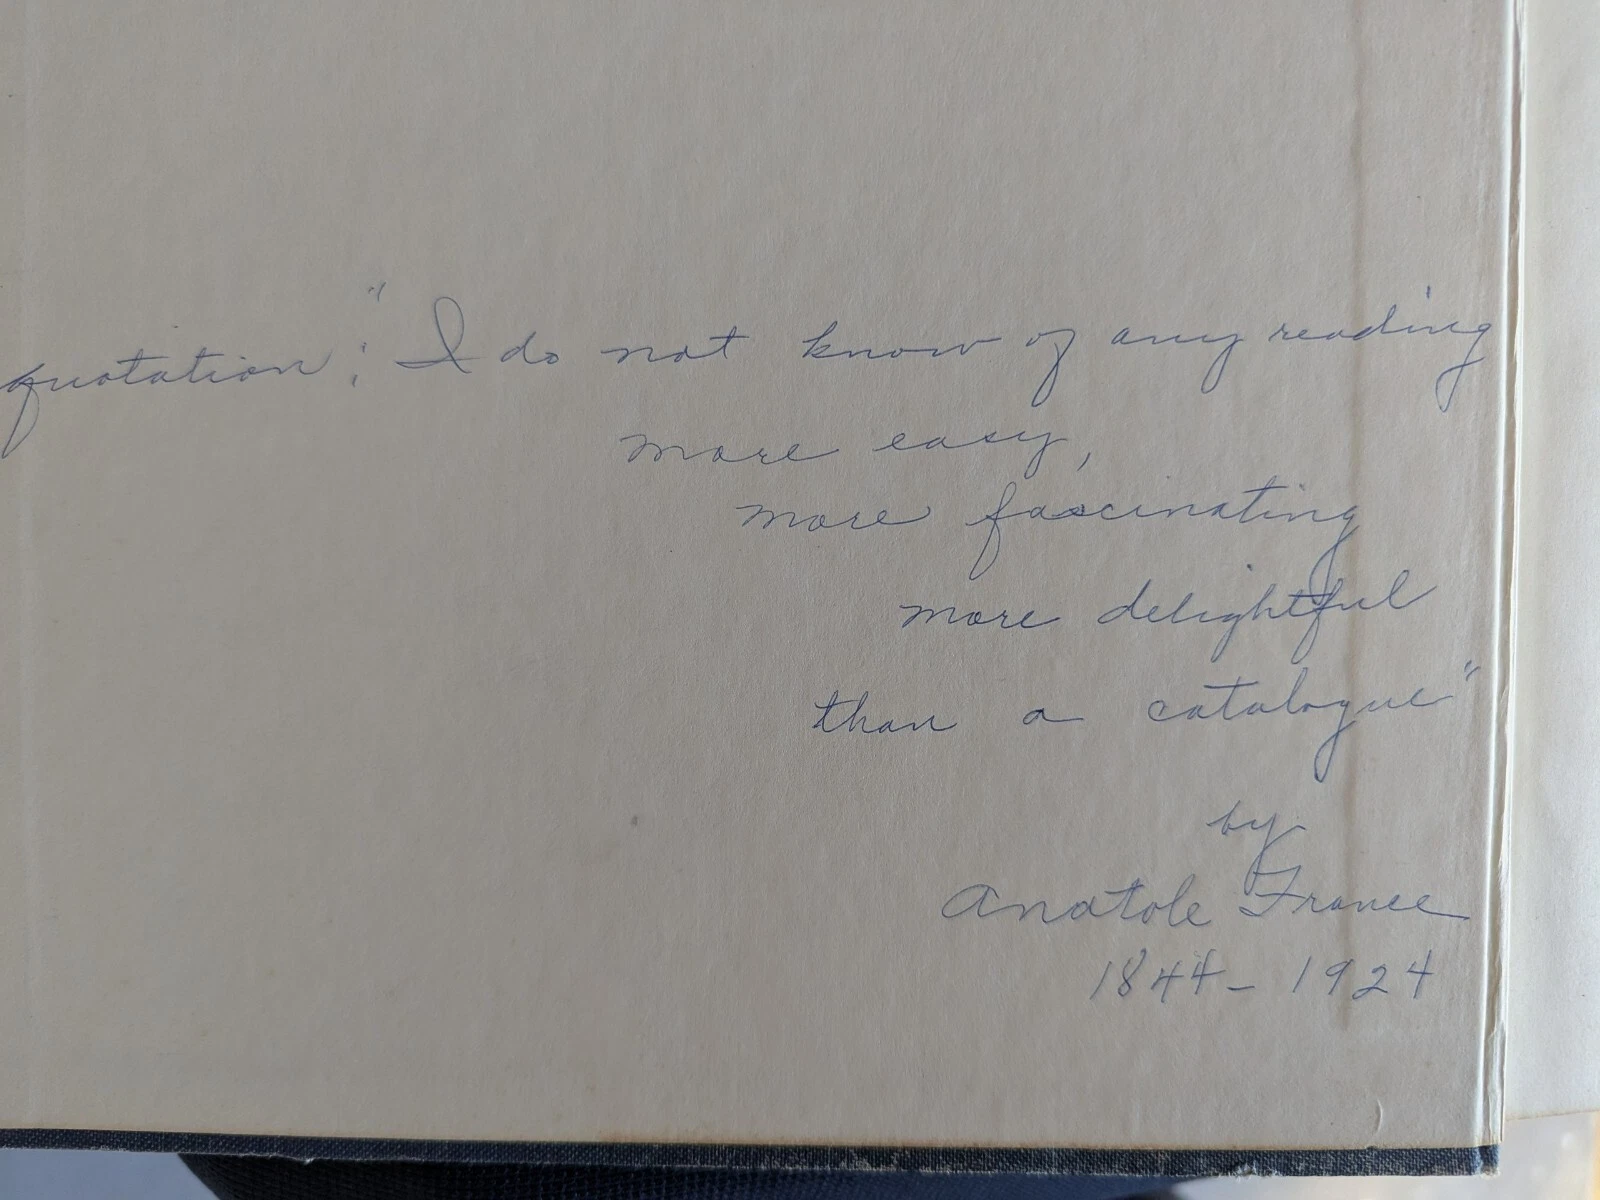 quotation: "I do not know of any reading
more easy,
more fascinating
more delightful
than a catalogue"
by
Anatole France
1844 - 1924